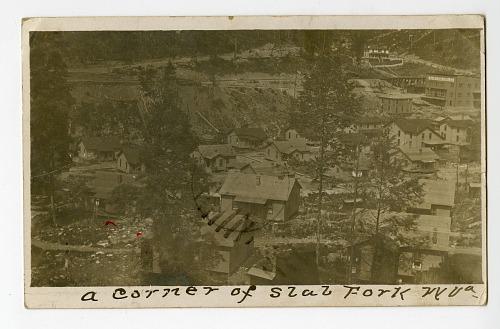 a corner of Slab Fork Wva